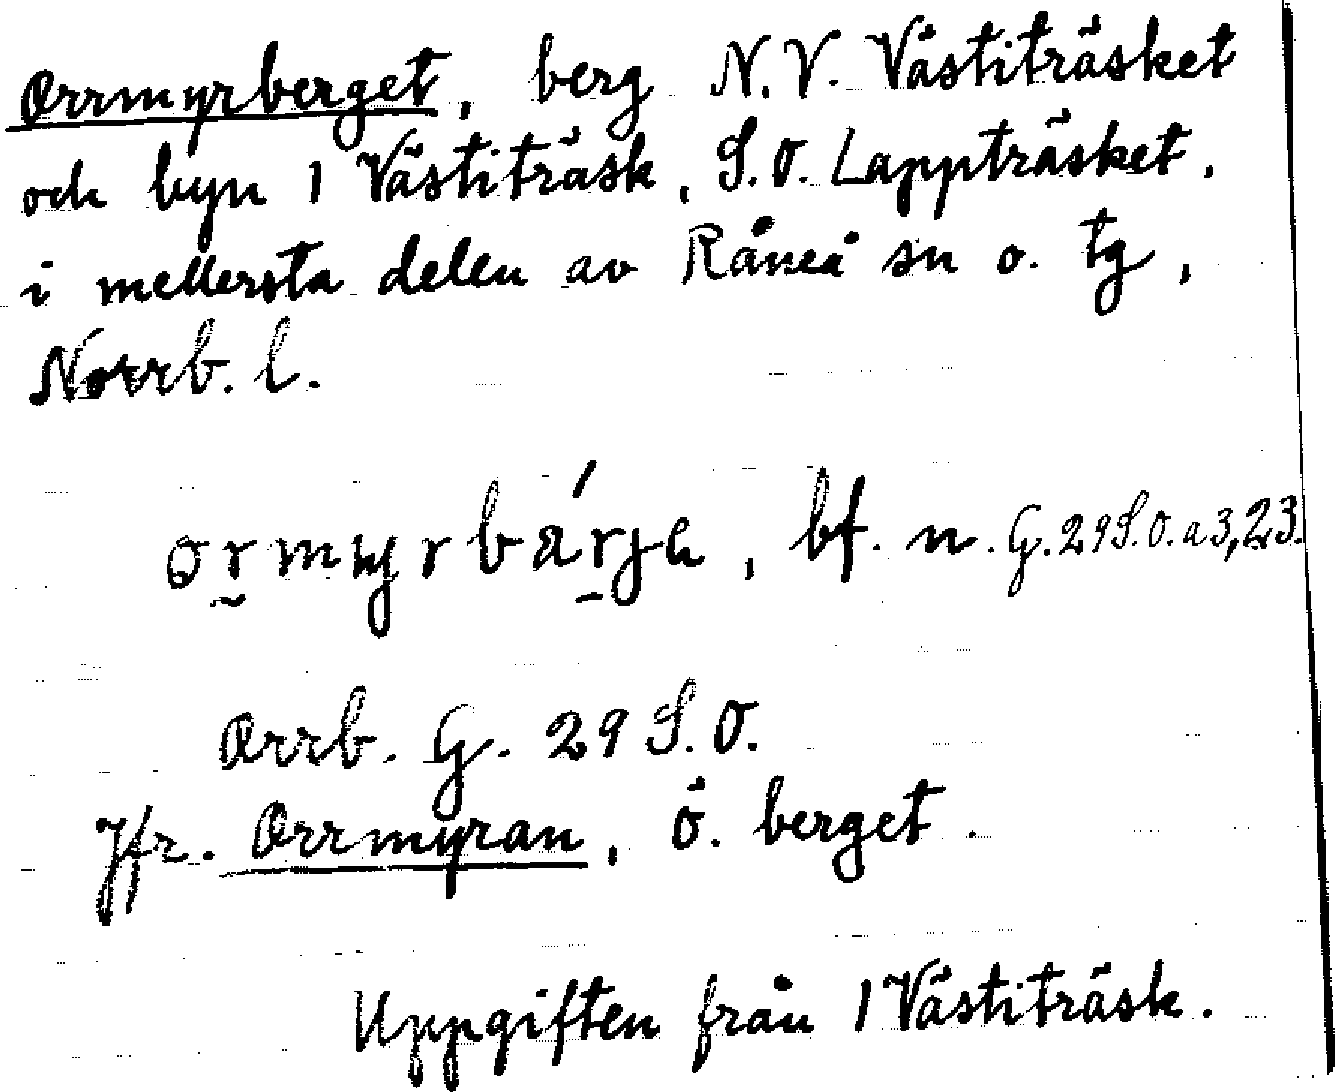 Orrmyrberget, berg N.V. Västiträsket
och byn 1 Västiträsk, S.O. Lappträsket,
i mellersta delen av Råneå sn o. tg,
Norrb. l.
ormyrbárja, bf. n. G. 29 S.O. a 3, 23.
Orrb. G. 29 S.O.
Jfr. Orrmyran, ö. berget.
Uppgiften från 1 Västiträsk.